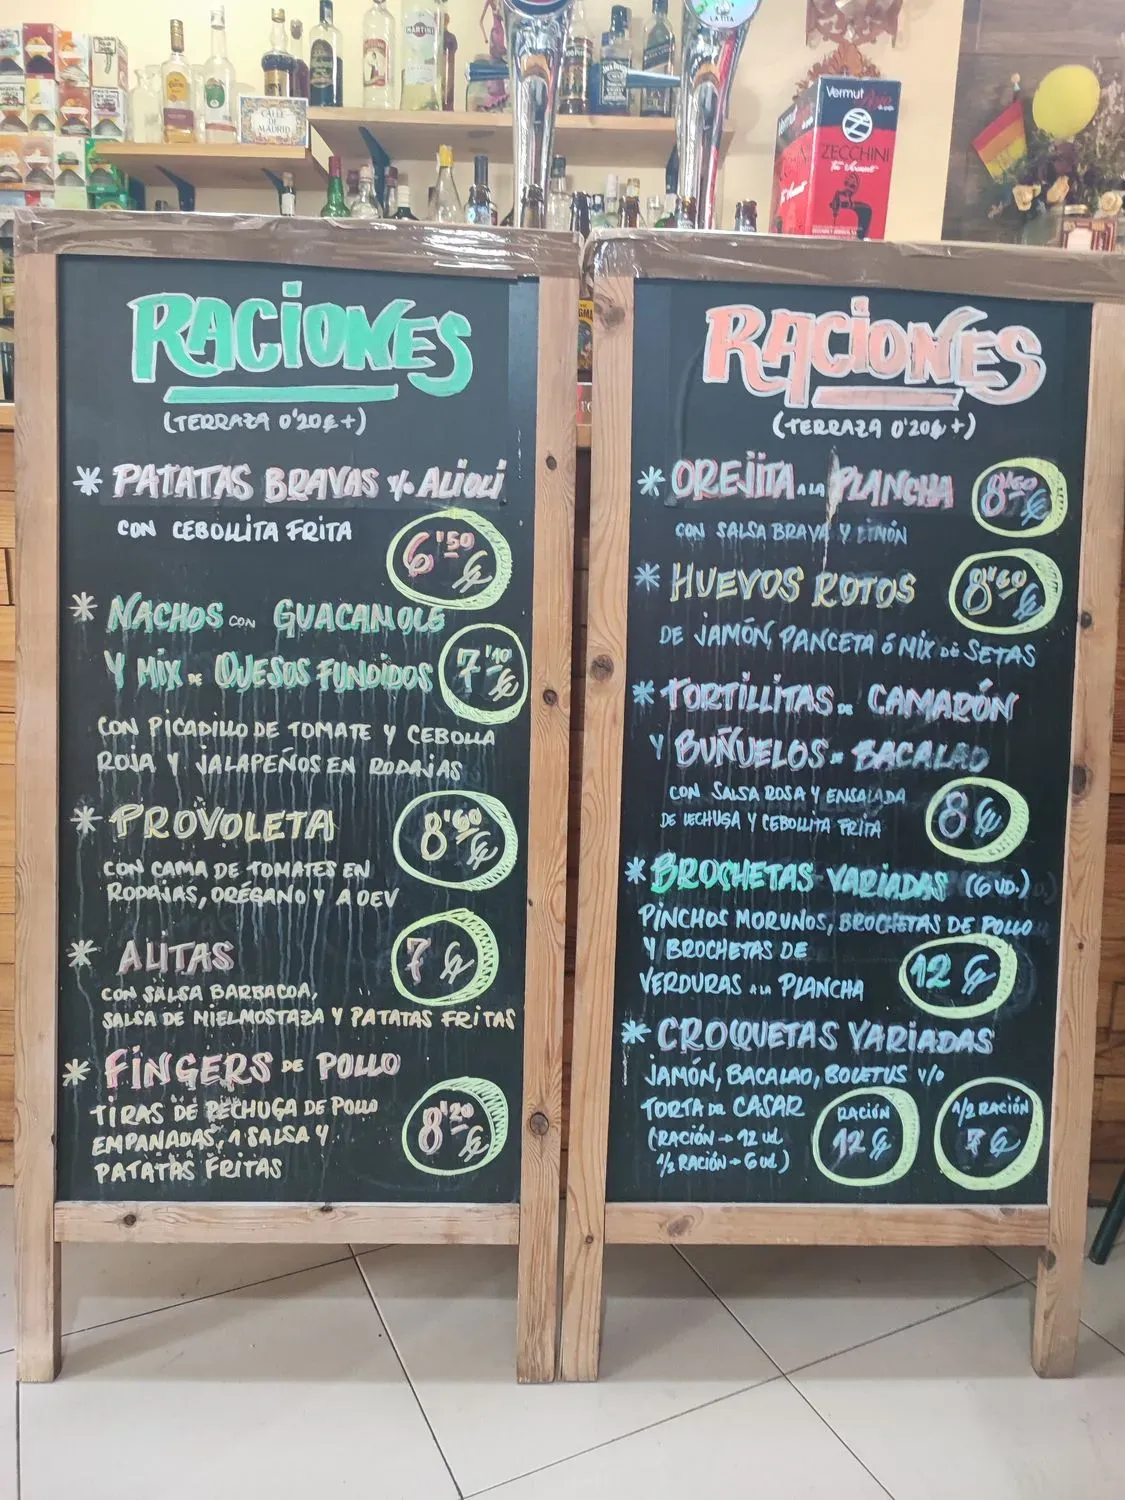 MARTINI
CALLE
DE
MADRID
LA TITA
Vermut
ZECCHINI
RACIONES
(TERRAZA 0'20€+)
* PATATAS BRAVAS Y/O ALIOLI
CON CEBOLLITA FRITA
6'50 €
* NACHOS CON GUACAMOLE
Y MIX DE QUESOS FUNDIDOS 7'10 €
CON PICADILLO DE TOMATE Y CEBOLLA
ROJA Y JALAPEÑOS EN RODAJAS
* PROVOLETA 8'60 €
CON CAMA DE TOMATES EN
RODAJAS, ORÉGANO Y A DEV
* ALITAS 7 €
CON SALSA BARBACOA,
SALSA DE MIELMOSTAZA Y PATATAS FRITAS
* FINGERS DE POLLO
TIRAS DE PECHUGA DE POLLO
EMPANADAS, 1 SALSA Y
PATATAS FRITAS
8'20 €
RACIONES
(TERRAZA 0'20€+)
* OREJITA A LA PLANCHA 8'60 €
CON SALSA BRAVA Y LIMÓN
* HUEVOS ROTOS 8'60 €
DE JAMÓN, PANCETA Ó MIX DE SETAS
* TORTILLITAS DE CAMARÓN
Y BUÑUELOS DE BACALAO
CON SALSA ROSA Y ENSALADA
DE LECHUGA Y CEBOLLITA FRITA
8 €
* BROCHETAS VARIADAS (6 UD.)
PINCHOS MORUNOS, BROCHETAS DE POLLO
Y BROCHETAS DE
VERDURAS A LA PLANCHA
12 €
* CROQUETAS VARIADAS
JAMÓN, BACALAO, BOLETUS Y/O
TORTA DEL CASAR
(RACIÓN → 12 ud
1/2 RACIÓN → 6 ud)
RACIÓN
12 €
1/2 RACIÓN
7 €